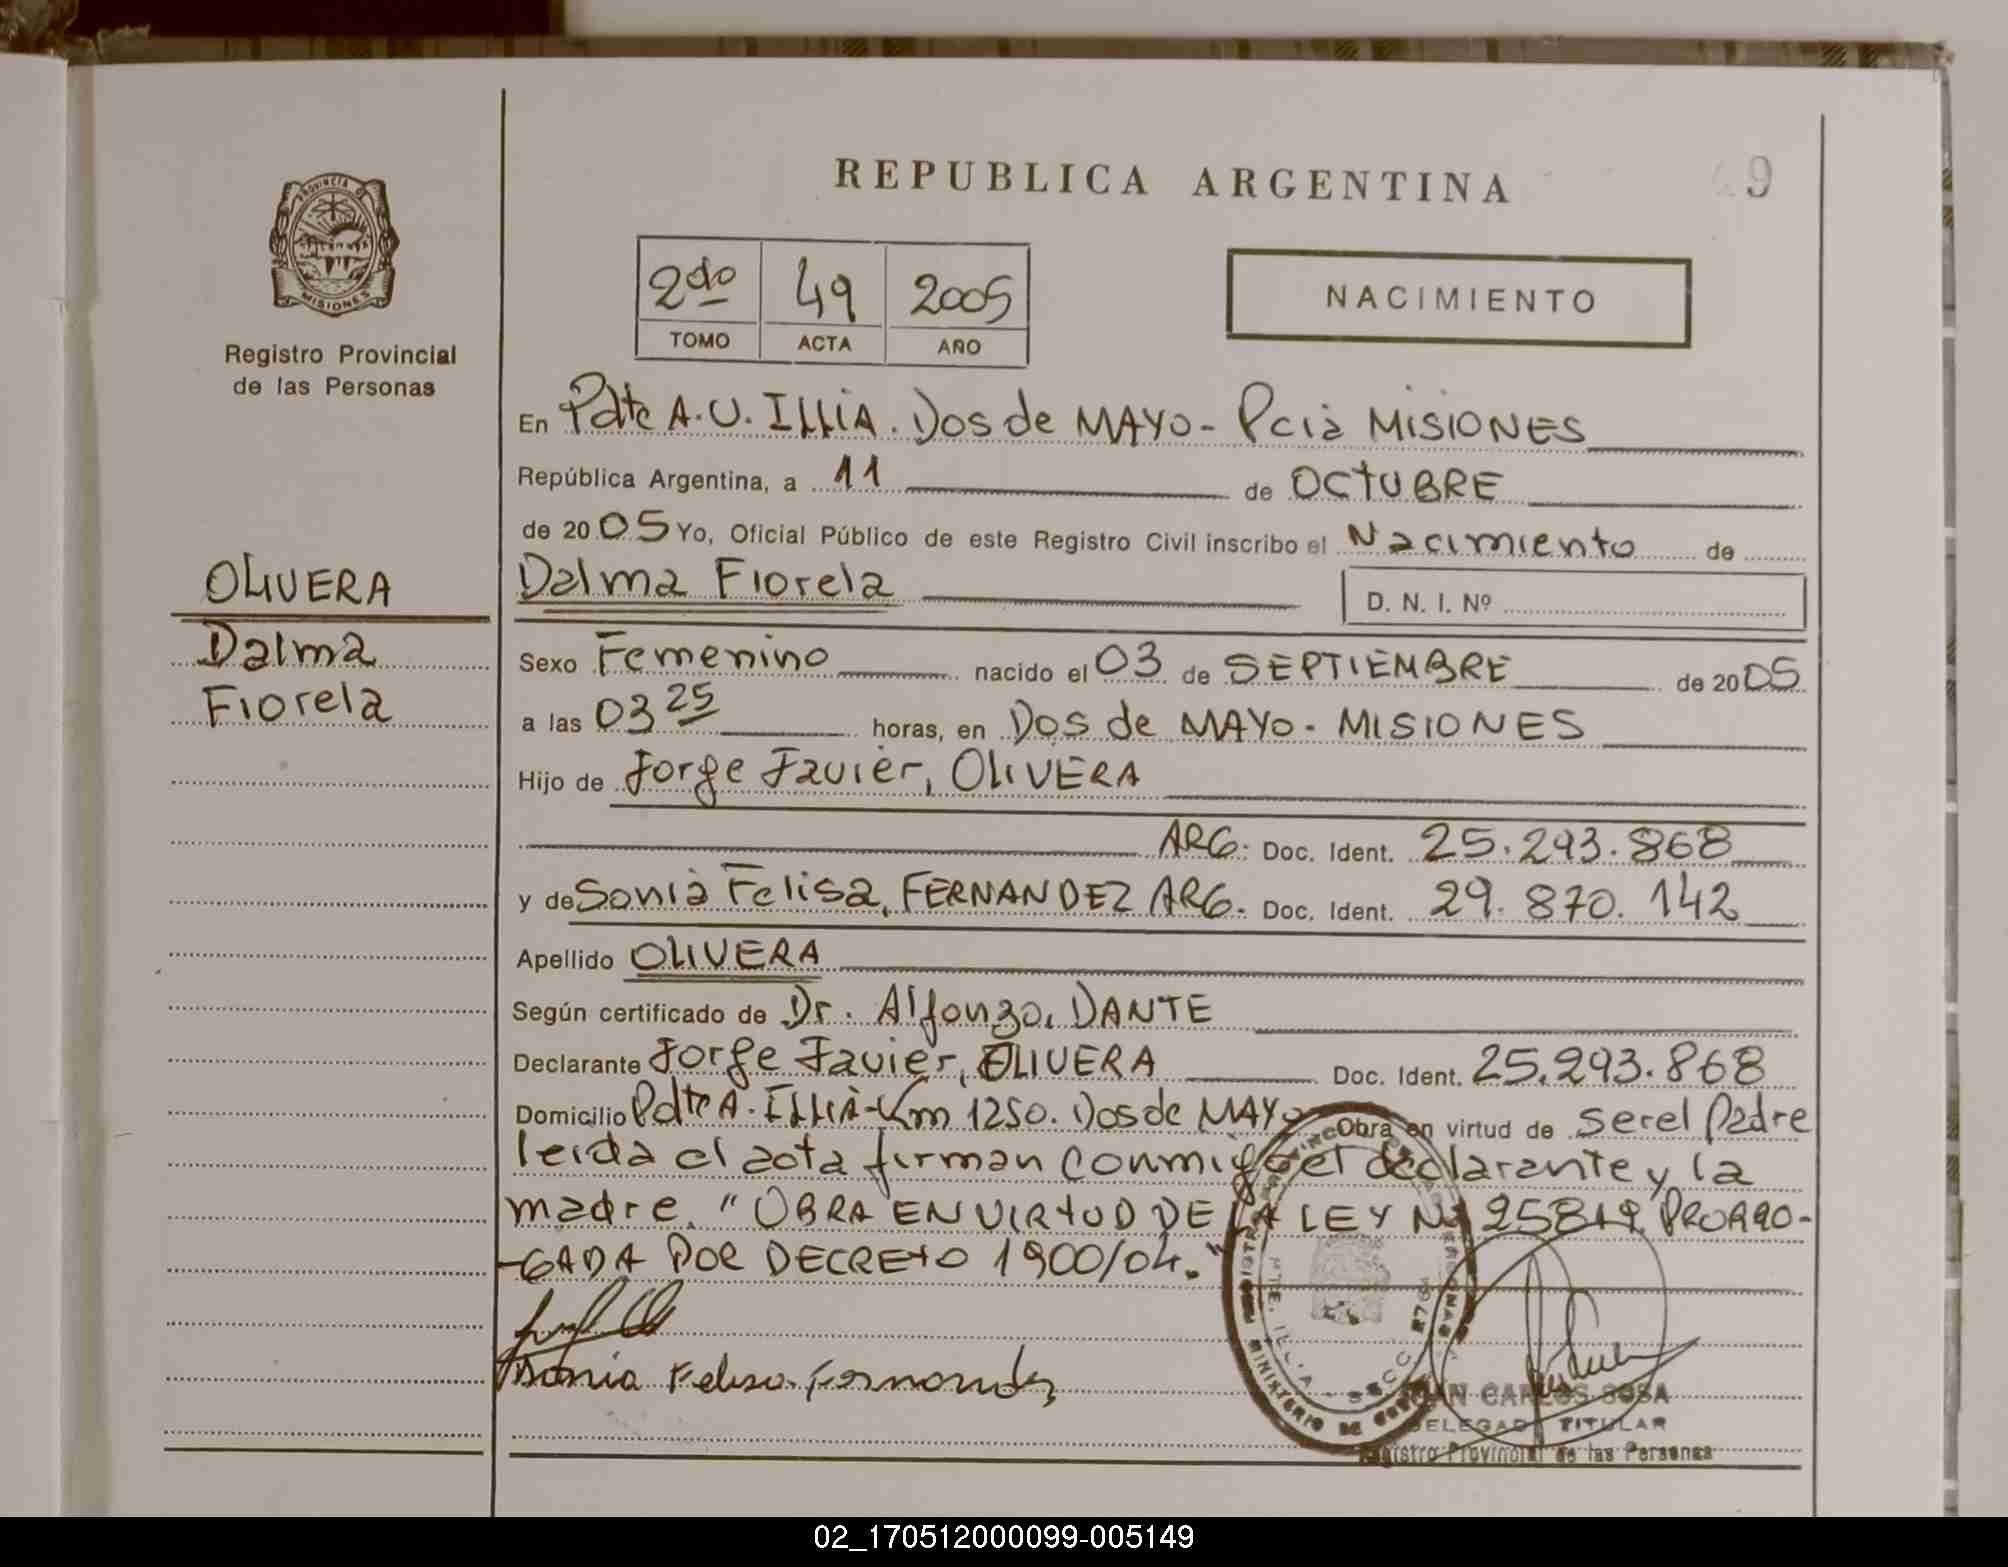 REPUBLICA ARGENTINA
9
PROVINCIA DE
MISIONES
Registro Provincial
de las Personas
2do 49 2005
TOMO ACTA AÑO
NACIMIENTO
En Pdte A.U. ILLIA. Dos de MAYO - Pcia MISIONES
República Argentina, a 11 de OCTUBRE
de 2005 Yo, Oficial Público de este Registro Civil inscribo el Nacimiento de
OLIVERA
Dalma
Fiorela
Dalma Fiorela D. N. I. Nº
Sexo Femenino nacido el 03 de SEPTIEMBRE de 2005
a las 03 25 horas, en Dos de MAYO - MISIONES
Hijo de Jorge Javier, OLIVERA
ARG. Doc. Ident. 25.293.868
y de Sonia Felisa, FERNANDEZ ARG. Doc. Ident. 29.870.142
Apellido OLIVERA
Según certificado de Dr. Alfonzo, DANTE
Declarante Jorge Javier, OLIVERA Doc. Ident. 25.293.868
Domicilio Pdte A. ILLIA - Km 1250. Dos de MAYO Obra en virtud de ser el Padre
leida el acta firman conmigo el declarante y la
madre. "OBRA EN VIRTUD DE LA LEY Nº 25819 PRORRO-
-GADA POR DECRETO 1900/04."
Sonia Felisa Fernandez
JUAN CARLOS SOSA
DELEGADO TITULAR
Registro Provincial de las Personas
02_170512000099-005149